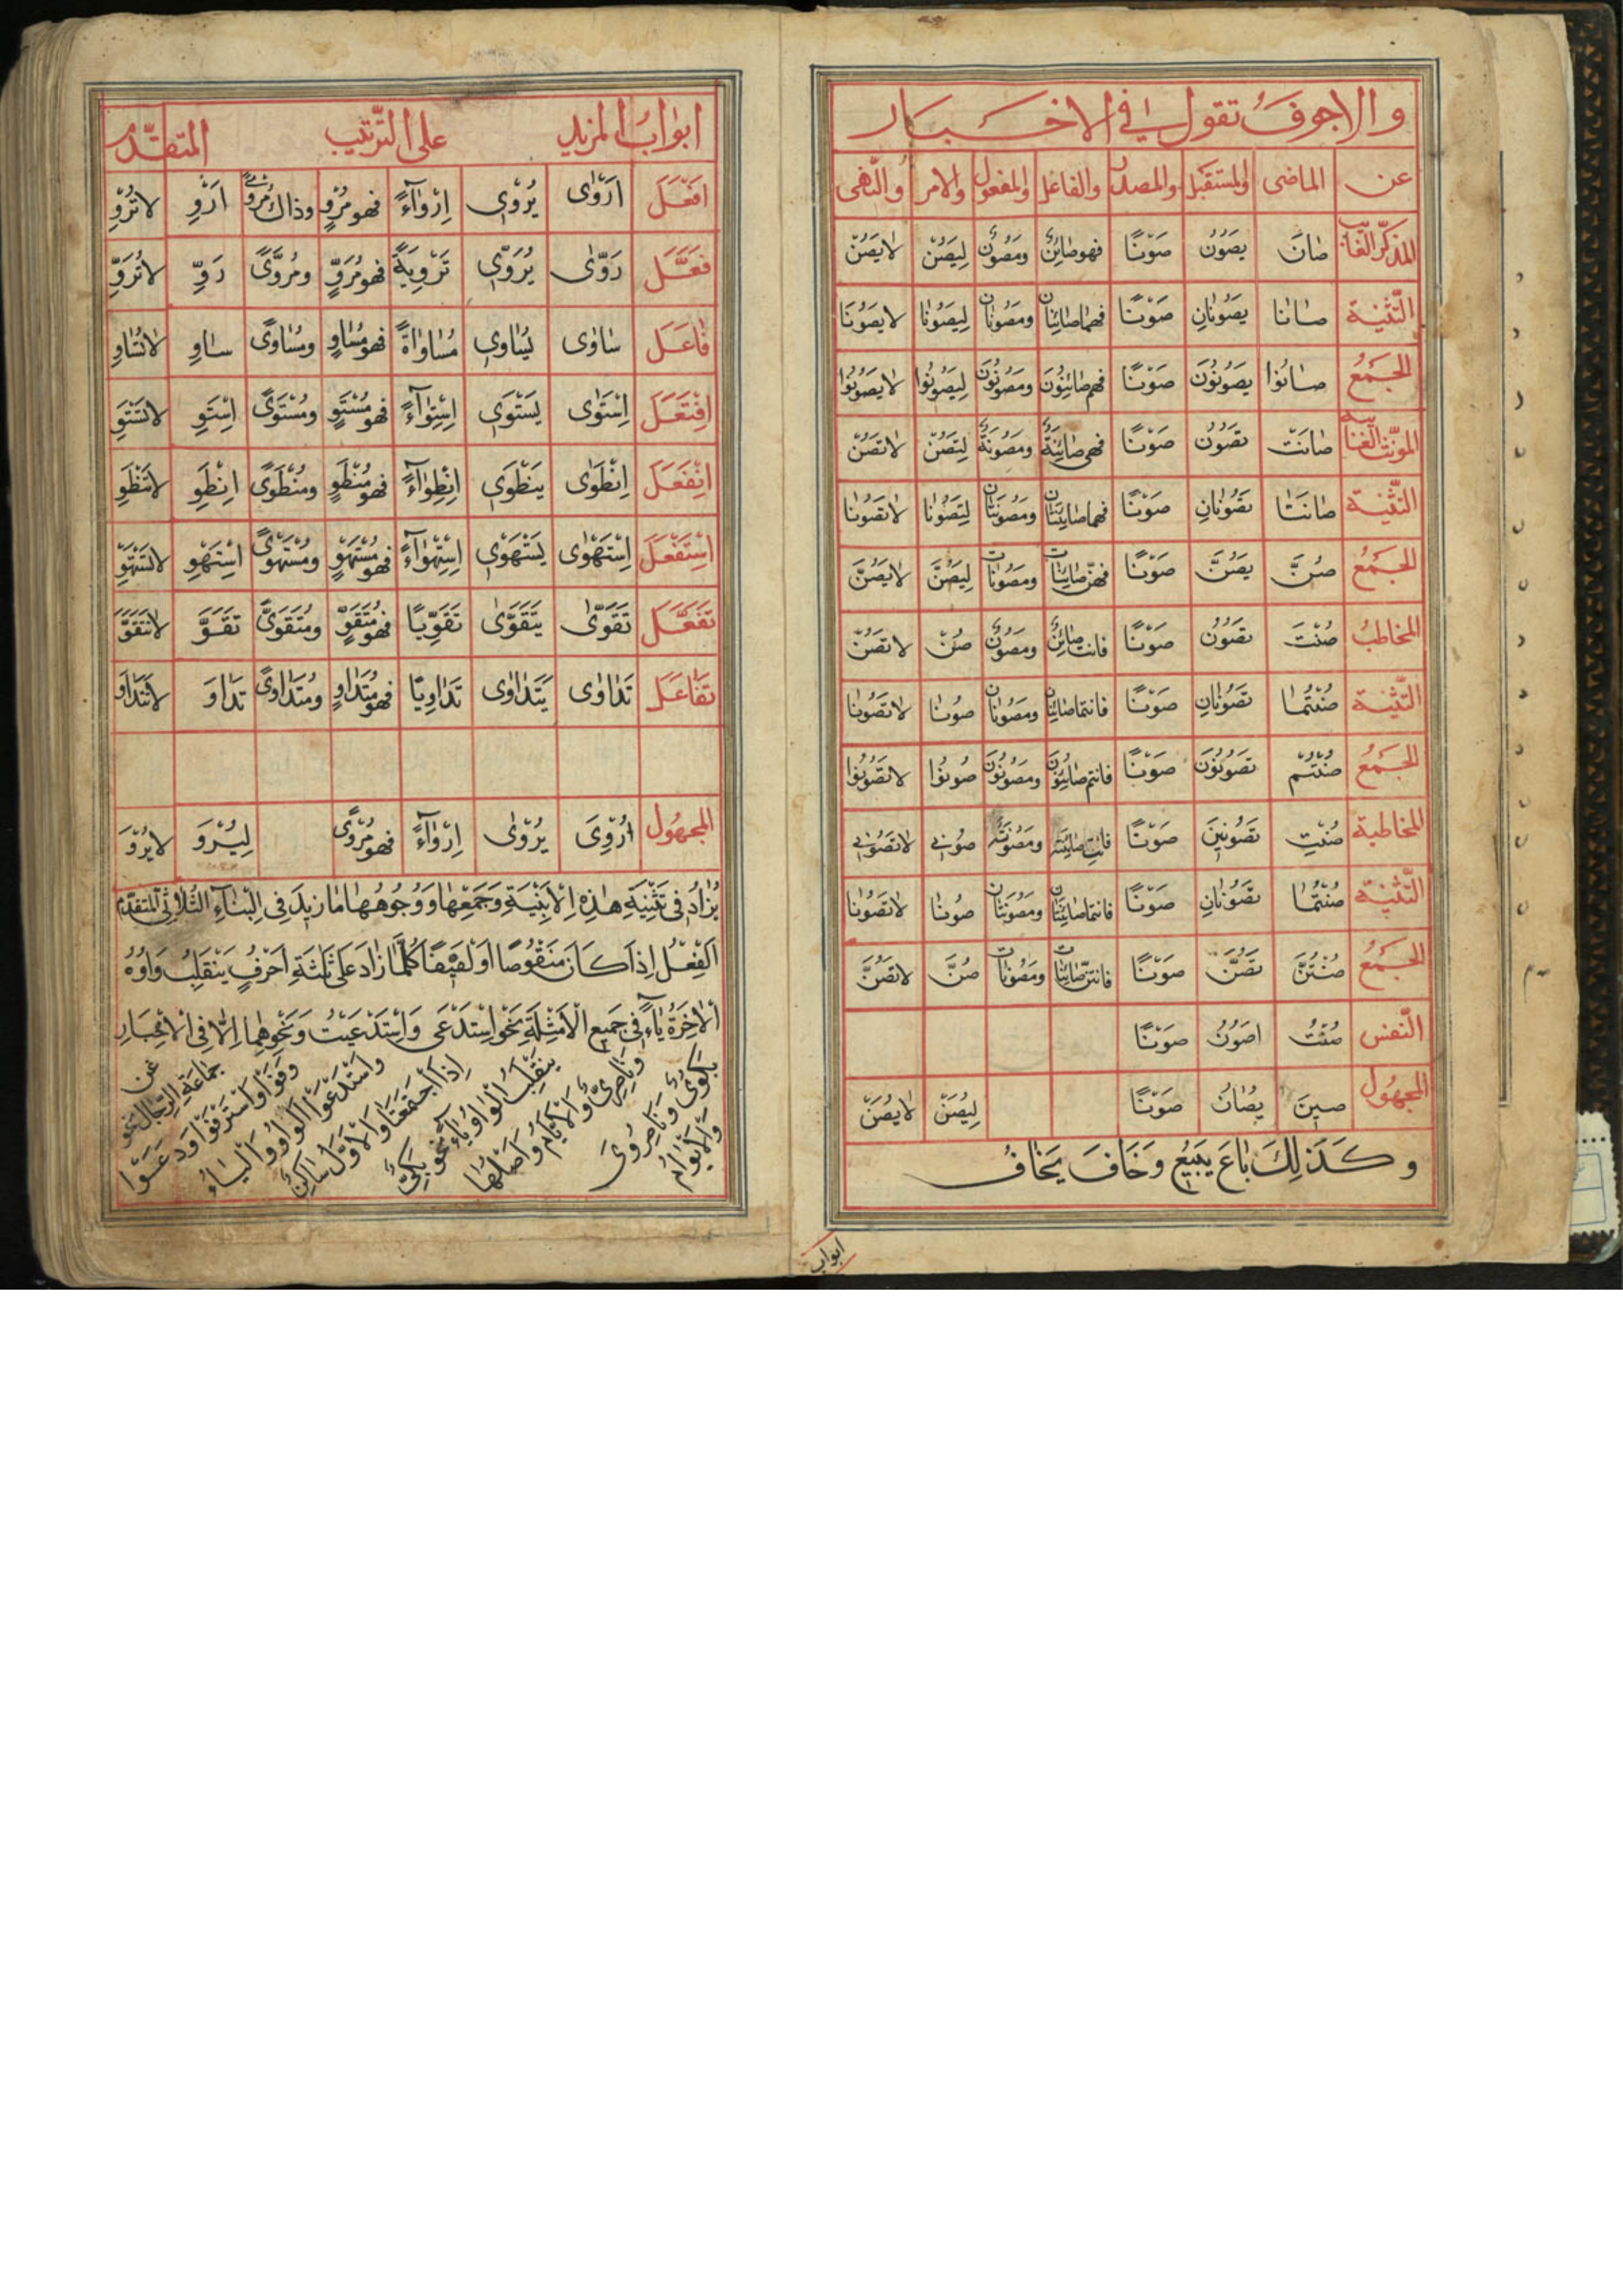 والاجوف تقول في الاخبار
عن الماضى والمستقبل والمصدر والفاعل والمفعول والامر والنّهى
المذكّر الغائب صٰانَ يَصُوُنُ صَوْنًا فهو صٰائِنٌ ومَصُوُنٌ لِيَصُنْ لٰا يَصُنْ
التّثنية صٰانٰا يَصُوُنٰانِ صَوْنًا فهما صٰائِنٰان ومَصُوُنٰان لِيَصُوُنٰا لا يَصُوُنَا
الجَمعُ صٰانُوا يَصُوُنُوُنَ صَوْنًا فهم صٰائِنُوُنَ ومَصُوُنُوُنَ لِيَصُوُنُوا لا يَصُوُنُوا
المونّث الغائبه صٰانَتْ تَصُوُنُ صَوْنًا فهى صٰائِنَةٌ ومَصُوُنَةٌ لِتَصُنْ لا تَصُنْ
التّثنية صٰانَتٰا تَصُوُنٰانِ صَوْنًا فهما صٰائِنَتٰان ومَصُوُنَتٰان لِتَصُوُنٰا لا تَصُوُنٰا
الجَمعُ صُنَّ يَصُنَّ صَوْنًا فهنّ صٰائِنٰات ومَصُوُنٰات لِيَصُنَّ لا يَصُنَّ
المخاطبُ صُنْتَ تَصُوُنُ صَوْنًا فانت صٰائِنٌ ومَصُوُنٌ صُنْ لا تَصُنْ
التّثنية صُنْتُمٰا تَصُوُنٰانِ صَوْنًا فانتما صٰائِنٰان ومَصُوُنٰان صُوُنٰا لا تَصُوُنٰا
الجَمعُ صُنْتُمْ تَصُوُنُوُنَ صَوْنًا فانتم صٰائِنُوُن ومَصُوُنُوُن صُوُنُوا لا تَصُوُنُوا
المخاطبة صُنْتِ تَصُوُنِينَ صَوْنًا فانتِ صٰائِنَة ومَصُوُنَة صُوُنِى لا تَصُوُنِى
التّثنية صُنْتُمٰا تَصُوُنٰانِ صَوْنًا فانتما صٰائِنَتٰان ومَصُوُنَتٰان صُوُنٰا لا تَصُوُنٰا
الجَمعُ صُنْتُنَّ تَصُنَّ صَوْنًا فانتنّ صٰائِنٰات ومَصُوُنٰات صُنَّ لا تَصُنَّ
النّفس صُنْتُ اَصُوُنُ صَوْنًا
المجهُول صينَ يُصٰانُ صَوْنًا لِيُصَنْ لا يُصَنْ
وكَذٰلِكَ بٰاعَ يَبيعُ وَخٰافَ يَخٰافُ
ابواب
ابوابُ المزيد على التّرتيب المتقدّم
اَفْعَلَ اَرْوٰى يُرْوى اِرْوٰآءً فهو مُرْوٍ وذاك مُرْوىً اَرْوِ لا تُرْوِ
فَعَّلَ رَوّٰى يُرَوّى تَرْوِيَةً فهو مُرَوٍّ ومُرَوًّى رَوِّ لا تُرَوِّ
فٰاعَلَ سٰاوٰى يُسٰاوى مُسٰاوٰاةً فهو مُسٰاوٍ ومُسٰاوىً سٰاوِ لا تُسٰاوِ
اِفْتَعَلَ اِسْتَوٰى يَسْتَوى اِسْتِوٰآءً فهو مُسْتَوٍ ومُسْتَوىً اِسْتَوِ لا تَسْتَوِ
اِنْفَعَلَ اِنْطَوٰى يَنْطَوى اِنْطِوٰآءً فهو مُنْطَوٍ ومُنْطَوىً اِنْطَوِ لا تَنْطَوِ
اِسْتَفْعَلَ اِسْتَهْوٰى يَسْتَهْوى اِسْتِهْوٰآءً فهو مُسْتَهْوٍ ومُسْتَهْوىً اِسْتَهْوِ لا تَسْتَهْوِ
تَفَعَّلَ تَقَوّٰى يَتَقَوّٰى تَقَوِّيًا فهو مُتَقَوٍّ ومُتَقَوًّى تَقَوَّ لا تَتَقَوَّ
تَفٰاعَلَ تَدٰاوٰى يَتَدٰاوٰى تَدٰاوِيًا فهو مُتَدٰاوٍ ومُتَدٰاوىً تَدٰاوَ لا تَتَدٰاوَ
المجهُول اُرْوِىَ يُرْوٰى اِرْوٰآءً فهو مُرْوىً لِيُرْوَ لا يُرْوَ
يُزٰادُ فى تَثْنِيَةِ هٰذِهِ الْاَبْنِيَةِ وَجَمْعِهٰا وَوُجُوُهِهٰا مٰا زيدَ فِى الْبِنٰآءِ الثُّلاثىِّ المتقدّم
اَلْفِعْلُ اِذٰا كٰانَ مَنْقُوُصًا اَوْ لَفيفًا كُلَّمٰا زٰادَ عَلىٰ ثَلٰثَةِ اَحْرُفٍ يَنْقَلِبُ وٰاوُهُ
الْاٰخِرَةُ يٰاءً فى جَميعِ الْاَمْثِلَةِ نَحْوُ اِسْتَدْعىٰ وَاِسْتَدْعَيْتُ وَنَحْوِهِمٰا اِلّٰا فِى الْاِخْبٰارِ
عَنْ جَمٰاعَةِ الرِّجٰالِ نحو
وَاسْتَدْعَوْا الوٰاوُ وَالْيٰاءُ
اِذَا اجْتَمَعَتٰا وَالْاَوَّلُ سٰاكِنٌ
يَنْقَلِبُ الْوٰاوُ يٰاءً نَحْوُ بَكِىٌّ
وَنٰاصِرِىَّ وَالْاَيّٰامُ وَاَصْلُهٰا
بَكُوىٌ وَنٰاصِرُوىَ
وَالْاَيْوٰامُ